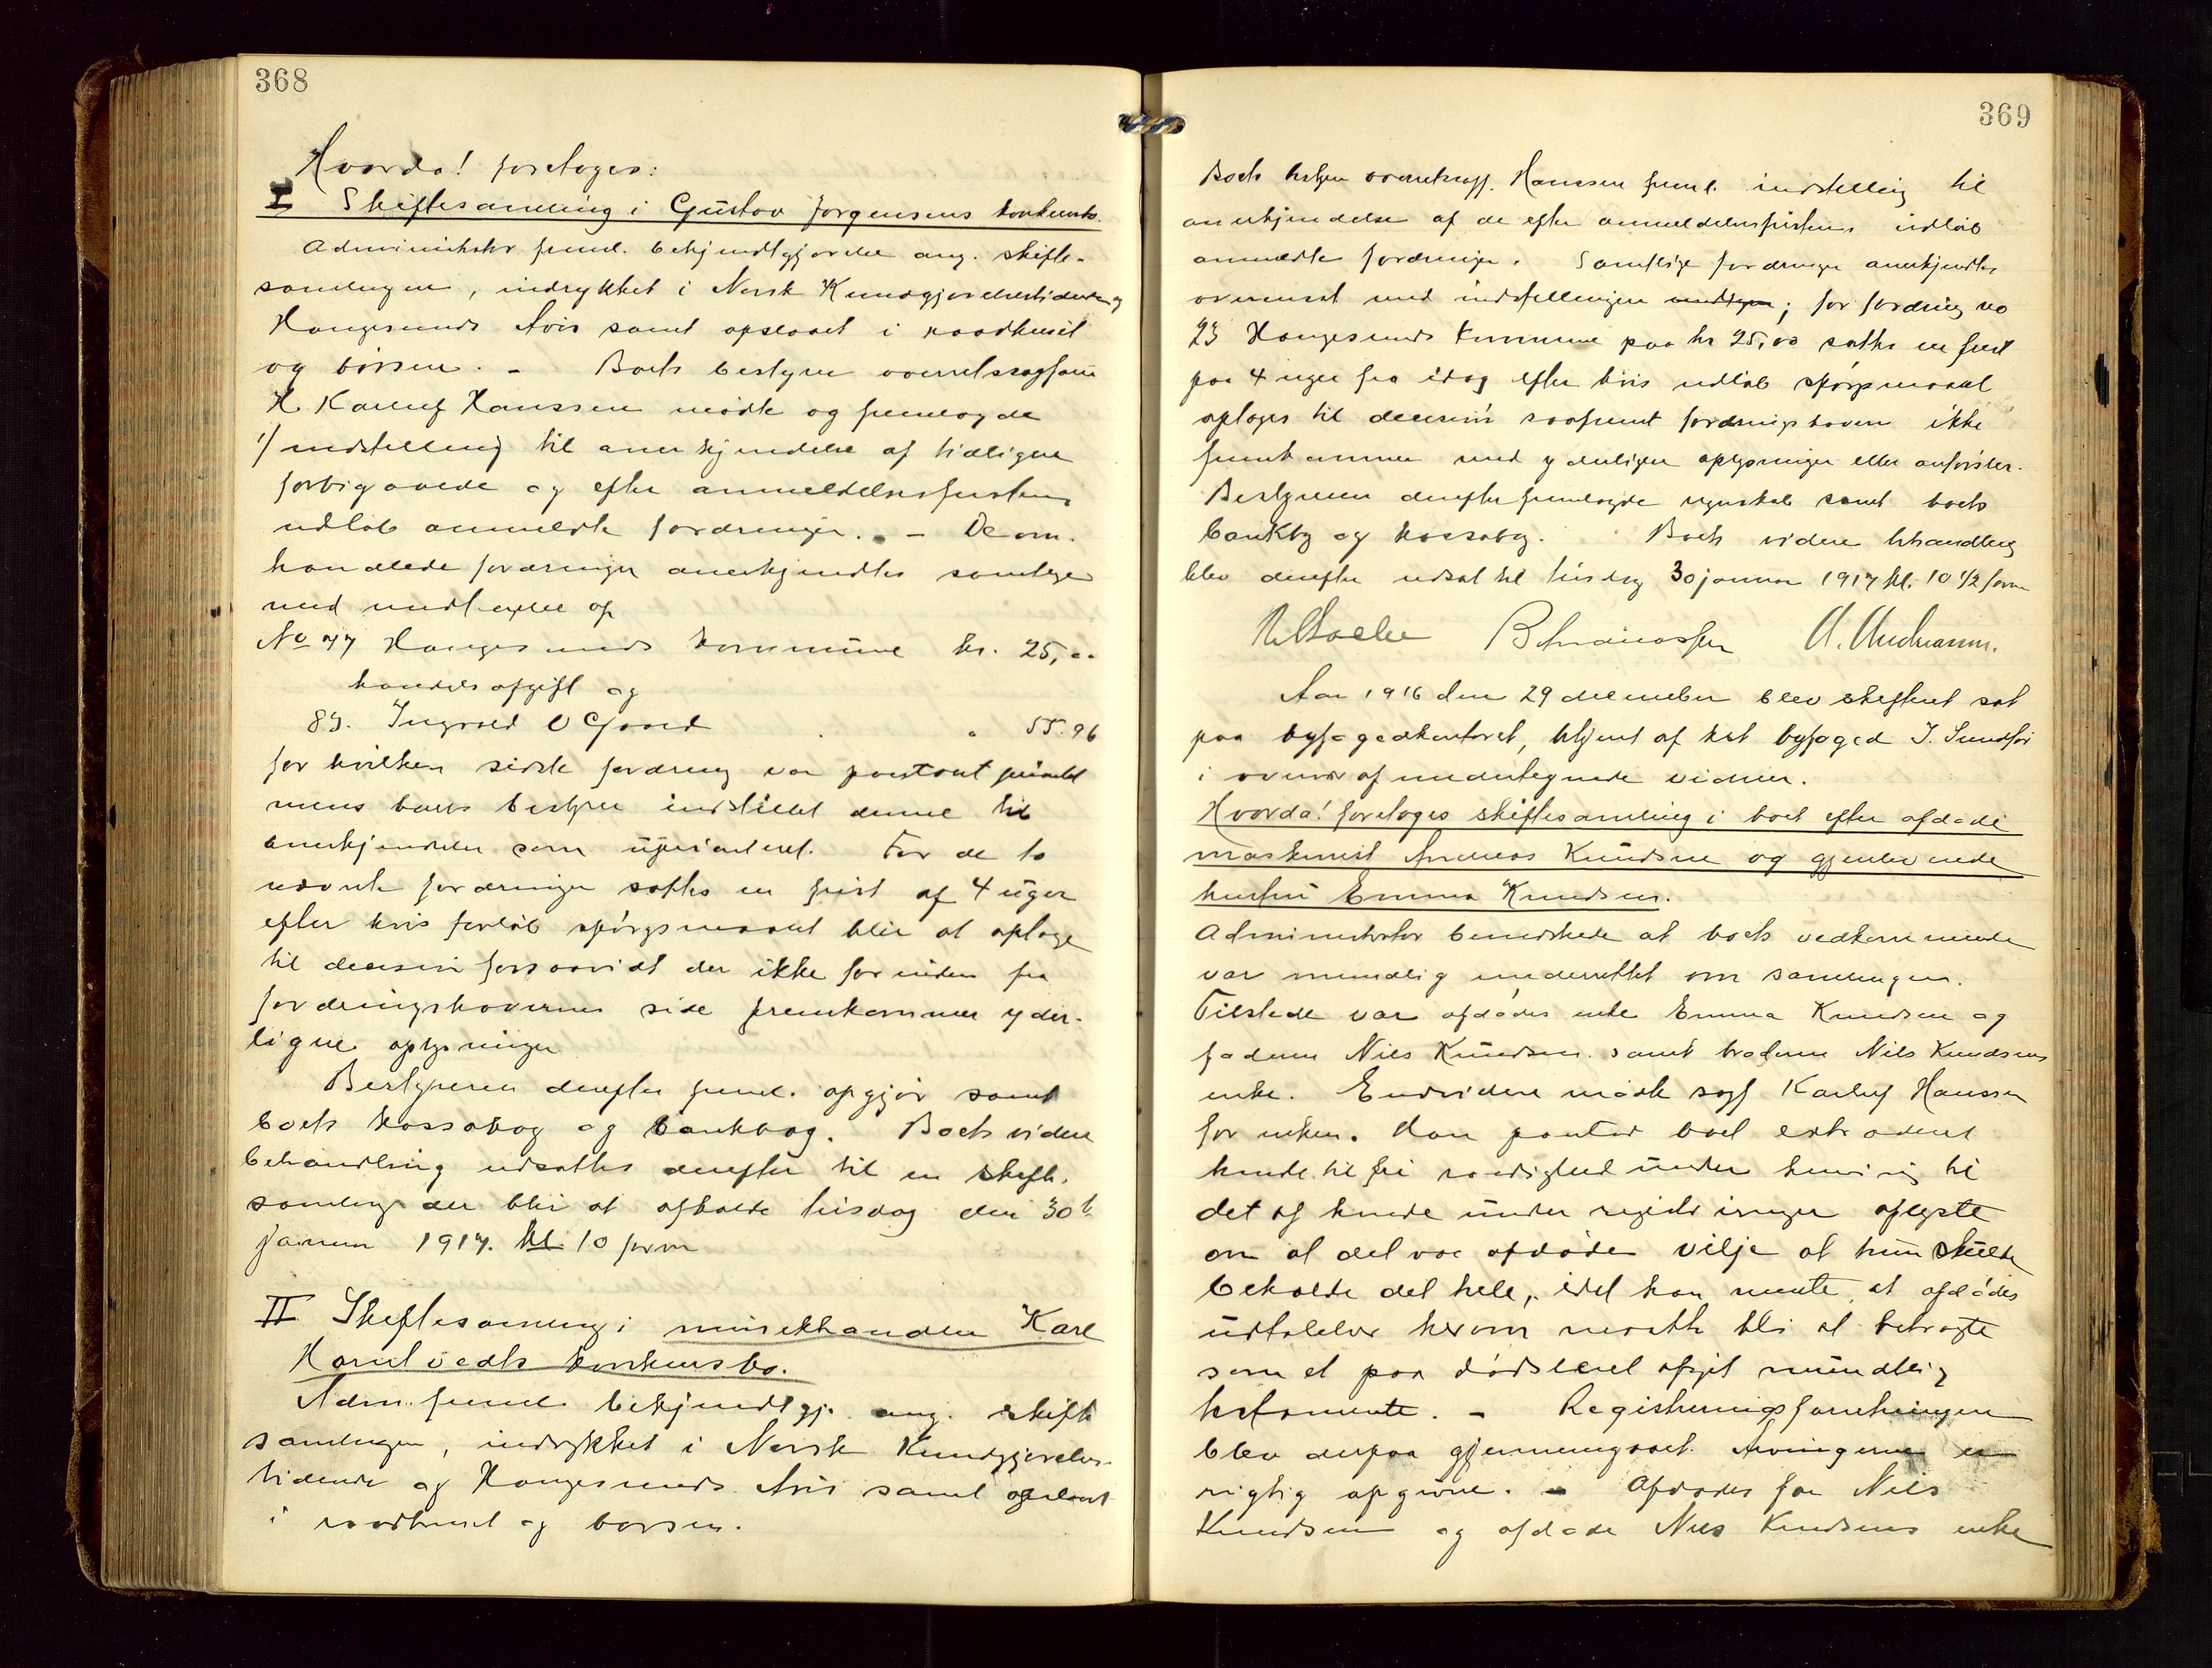 368
Hvorda! foretoges:
I Skiftesamling i Gustav Jørgensens konkursbo.
Administrator freml. bekjendtgjørelse ang. skifte-
samlingen, indrykket i Norsk Kundgjørelsestidende og
Haugesunds Avis samt opslaaet i raadhuset
og børsen. – Boets bestyrer overretssagfører
H. Karluf Hanssen mødte og fremlagde
1/ indstilling til anerkjendelse af tidligere
forbigaaede og efter anmeldelsesfristens
udløb anmeldte fordringer. – De om-
handlede fordringer anerkjendtes samtlige
med undtagelse af
No 77 Haugesunds kommune kr. 25,00
handelsafgift og
83. Ingvald Gaard " 55.96
for hvilken sidste fordring var paastaaet
mens boets bestyrer indstillet denne til
anerkjendelse som uprioriteret. For de to
nævnte fordringer sattes en frist af 4 uger
efter hvis forløb spørgsmaalet blir at optage
til decision forsaavidt der ikke forinden fra
fordringshavernes side fremkommer yder-
ligere oplysninger
Bestyreren derefter freml. opgjør samt
boets kassabog og bankbog. Boets videre
behandling udsattes derefter til en skifte-
samling der blir at afholde tirsdag den 30te
januar 1917. kl. 10 form
II Skiftesamling i musikhandler Karl
Hamtvedts konkursbo.
Adm. freml. bekjendtgj. ang. skifte
samlingen, indrykket i Norsk Kundgjørelses-
tidende og Haugesunds Avis samt opslaaet
i raadhuset og børsen.
369
Boets bestyrer overretssagf. Hanssen freml. indstilling til
anerkjendelse af de efter anmeldelsesfristens udløb
anmeldte fordringer. Samtlige fordringer anerkjendtes
overensst med indstillingen; for fordring no
23 Haugesunds kommune paa kr 25,00 sattes en frist
paa 4 uger fra idag efter hvis udløb spørgsmaalet
optages til decision saafremt fordringshaveren ikke
fremkommer med yderligere oplysninger eller anførsler.
Bestyreren derefter fremlagde regnskab samt boets
bankbg og kassabg. Boets videre behandling
blev derefter udsat til tirsdag 30 januar 1917 kl. 10 1/2 form
A. Andreassen.
Aar 1916 den 29 december blev skifteret sat
paa byfogedkontoret, betjent af kst byfoged J. Sundfør
i overvær af undertegnede vidner.
Hvorda! foretoges skiftesamling i boet efter afdøde
maskinist Andreas Knudsen og gjenlevende
hustru Emma Knudsen.
Administrator bemerkede at boets vedkommende
var mundtlig underrettet om samlingen.
Tilstede var afdødes enke Emma Knudsen og
faderen Nils Knudsen samt broderen Nils Knudsens
enke. Endvidere mødte sagf Karluf Hanssen
for enken. Han paastod boet extraderet
hende til fri raadighed under henvisning til
det af hende under registreringen oplyste
om at det var afdødes vilje at hun skulde
beholde det hele, idet han mente, at afdødes
udtalelse herom maatte bli at betragte
som et paa dødsleiet afgit mundtlig
testamente. – Registreringsforretningen
blev derpaa gjennemgaaet. Arvingerne er
rigtig opgivne. – Afdødes far Nils
Knudsen og afdøde Nils Knudsens enke